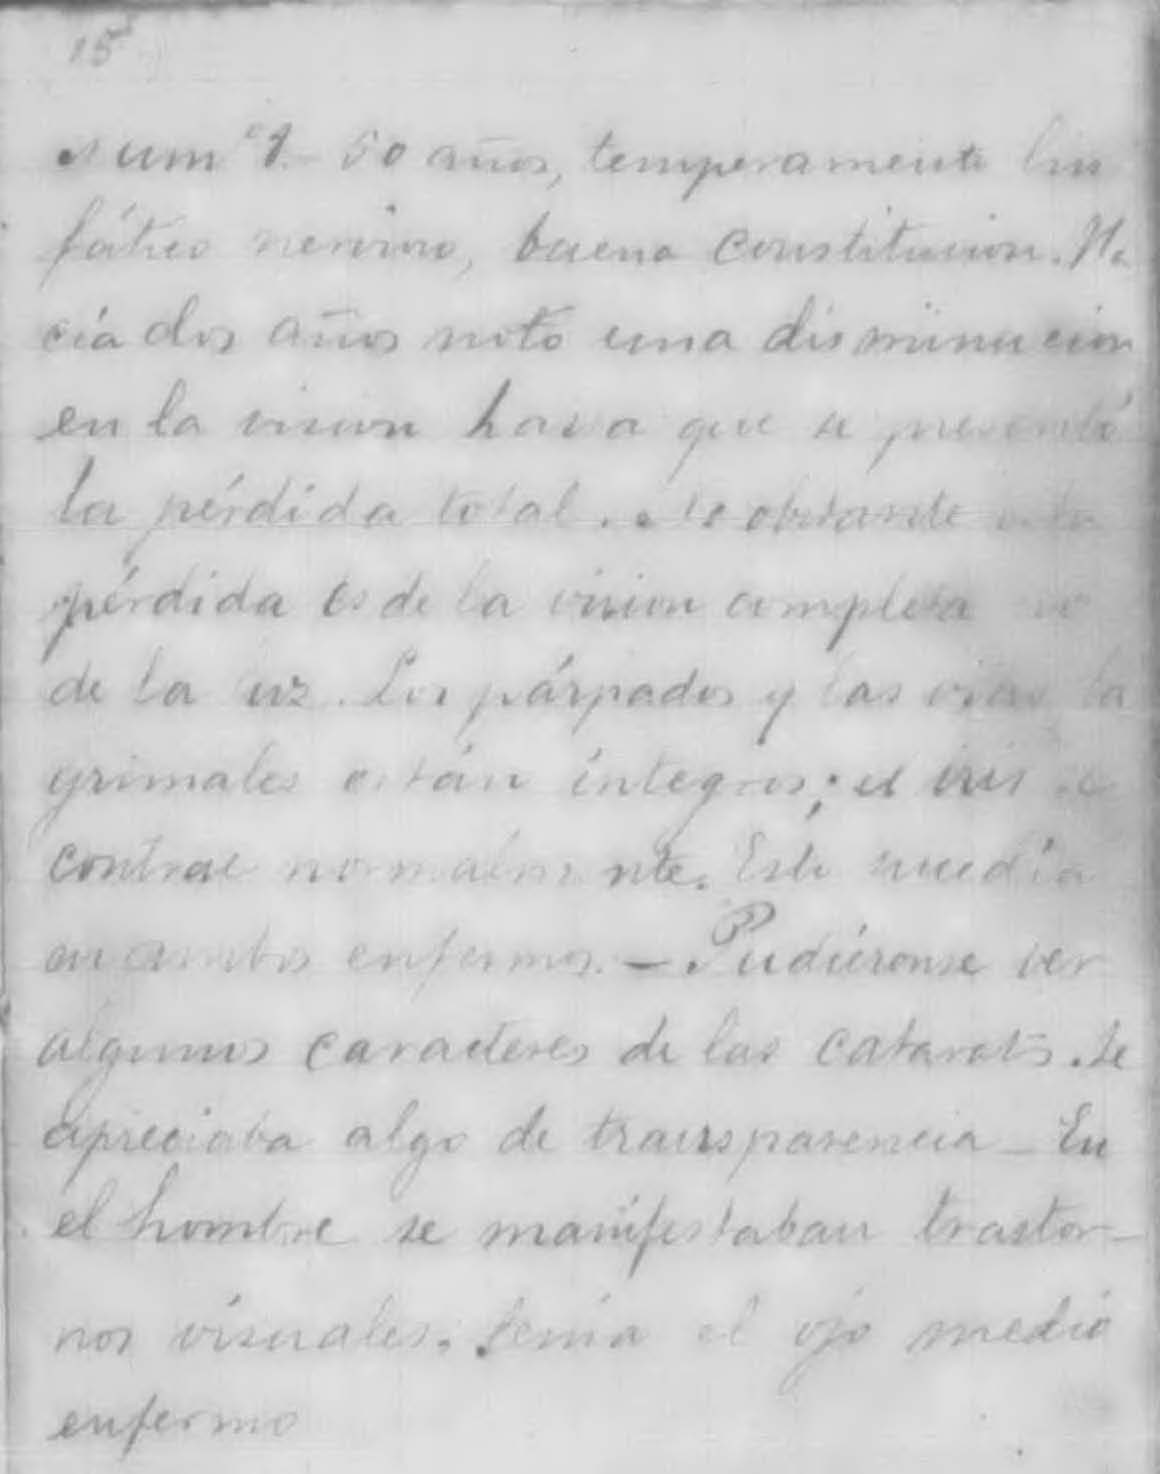 15
Num º 1.- 50 años, temperamento lin
fático nervioso, buena constitucion. Ha
cía dos años notó una disminucion
en la vision hasta que se presentó
la pérdida total. No obstante esta
pérdida es de la vision completa no
de la luz. Los párpados y las vias la
grimales están íntegros; el iris se
contrae normalmente. Esto sucedía
en ambos enfermos. - Pudiéronse ver
algunos caracteres de las cataratas. Se
apreciaba algo de transparencia - En
el hombre se manifestaban trastor-
nos visuales. tenía el ojo medio
enfermo